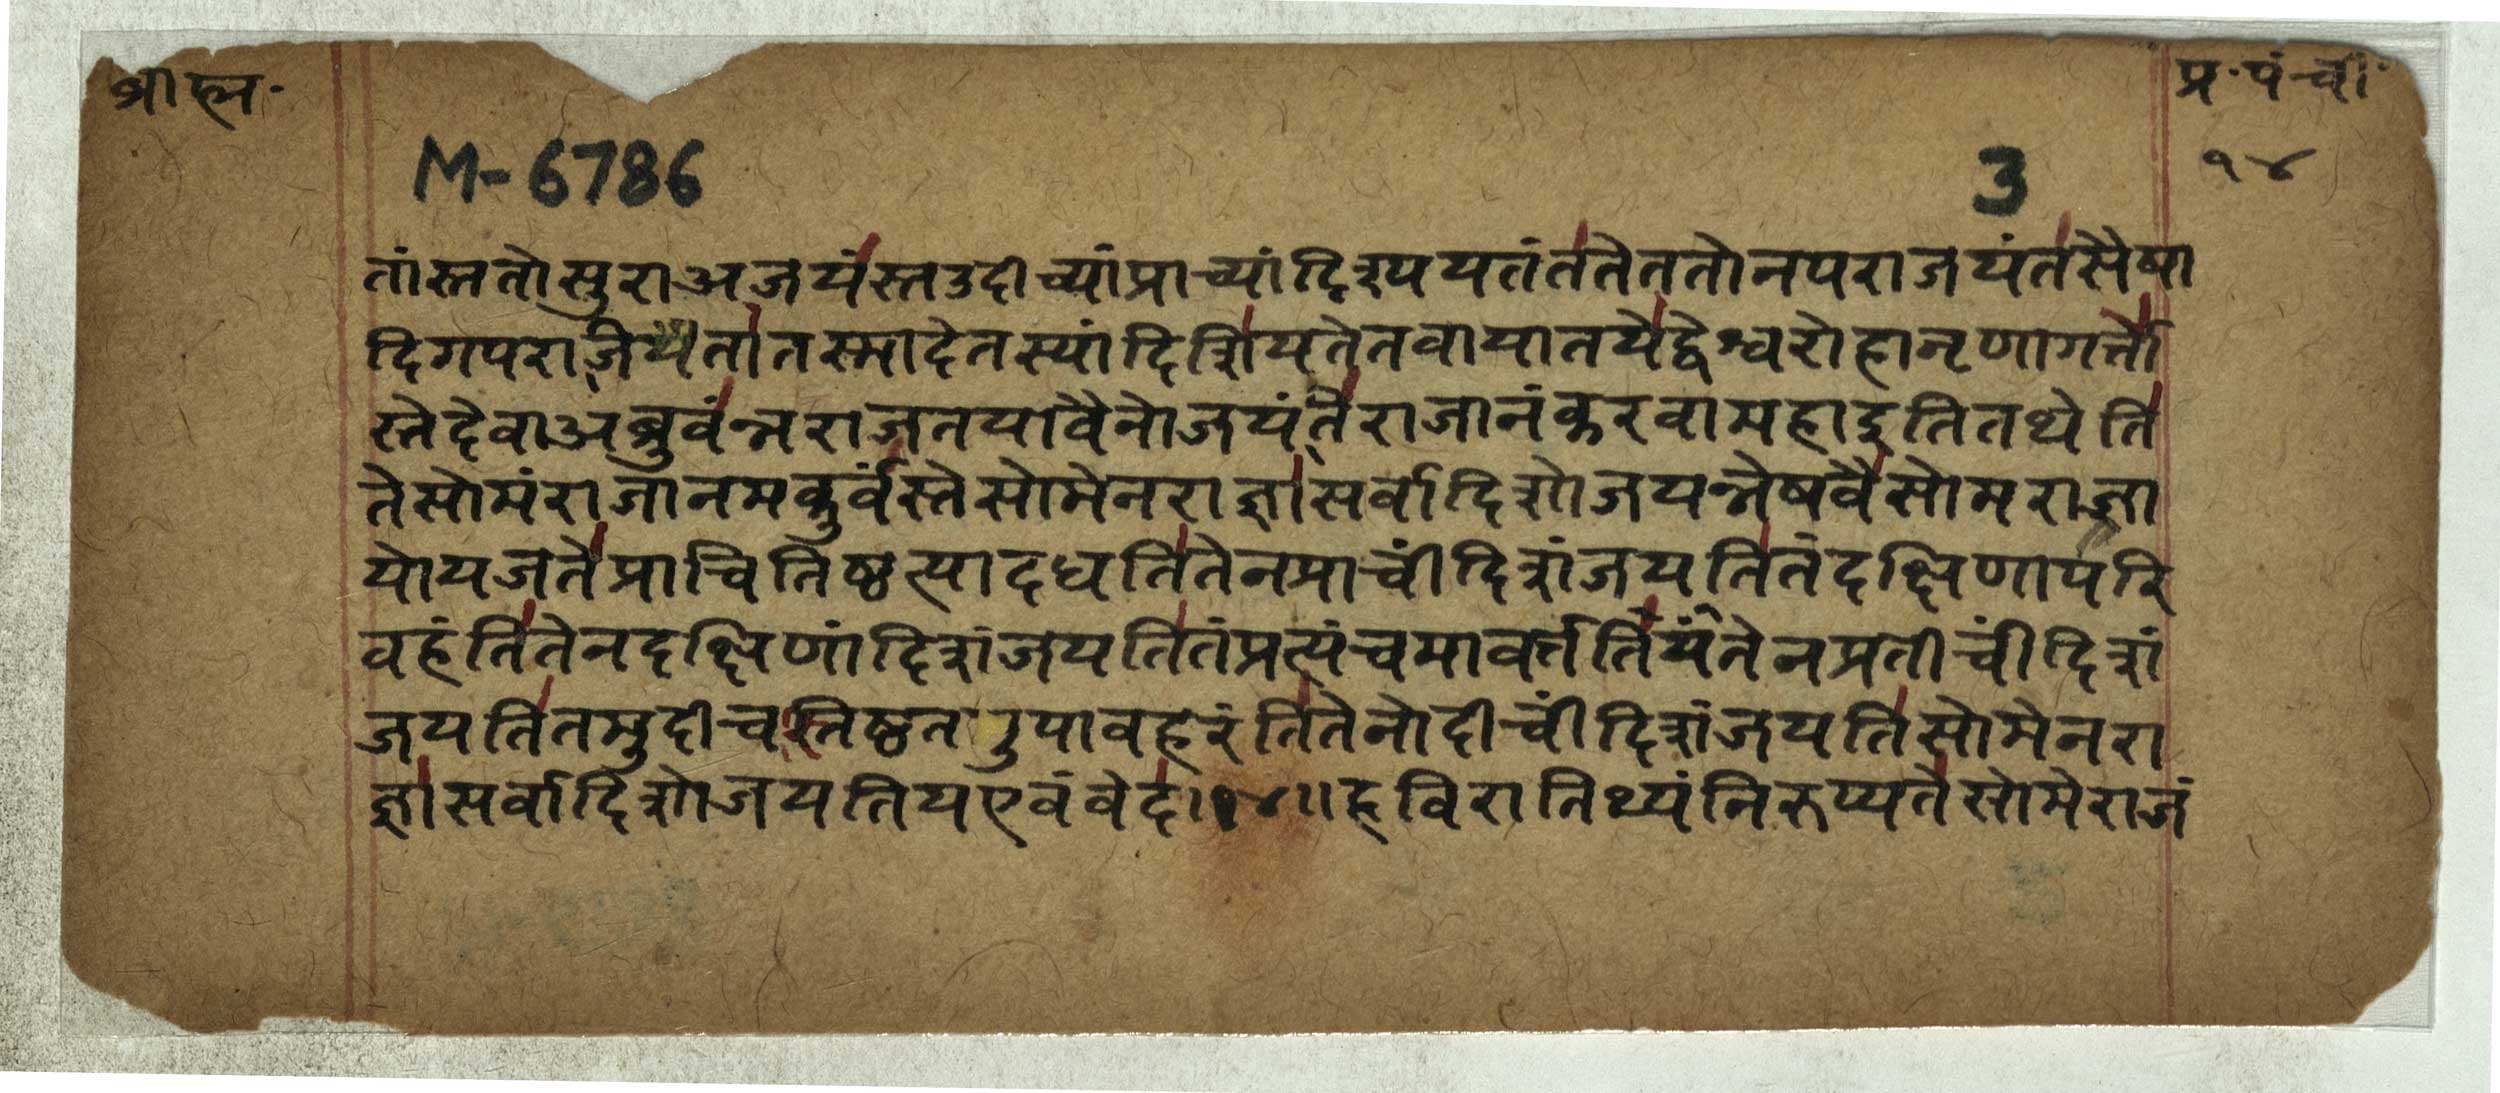 ब्राह्म.
प्र. पंची.
M-6786
3
१४
तांस्ततोसुराअजयंस्तउदीच्यांप्राच्यांदिश्ययतंततेततोनपराजयंतसैषा
दिगपराजितातस्मादेतस्यांदिशियतेतवायातयेद्वेश्वरोहानृणाकर्त्तो
स्तेदेवाअब्रुवंन्नराजतयावैनोजयंतिराजानंकरवामहाइतितथेति
तेसोमंराजानमकुर्वंस्तेसोमेनराज्ञासर्वादिशोजयन्नेषवैसोमराजा
योयजतेप्राचितिष्ठत्यादधतितेनप्राचींदिशंजयतितंदक्षिणापरि
वहंतितेनदक्षिणांदिशंजयतितंप्रत्यंचमावर्त्तयंतितेनप्रतीचींदिशं
जयतितमुदीचस्तिष्ठतउपावहरंतितेनोदीचींदिशंजयतिसोमेनरा
ज्ञासर्वादिशोजयतियएवंवेद॥१४॥हविरातिथ्यंनिरुप्यतेसोमेराजं